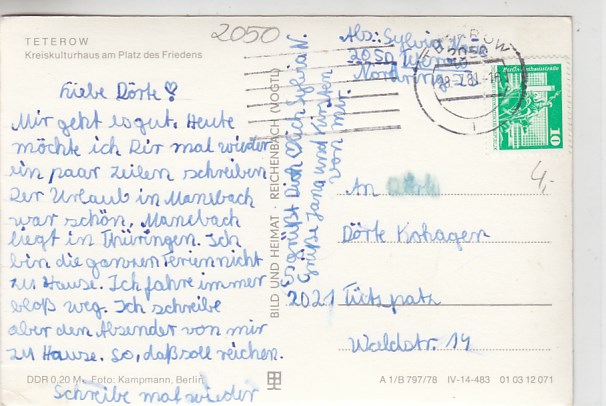 TETEROW
Kreiskulturhaus am Platz des Friedens
2050
Liebe Dörte!
Mir geht es gut. Heute
möchte ich Dir mal wieder
ein paar zeilen schreiben.
Der Urlaub in Manebach
war schön, Manebach
liegt in Thüringen. Ich
bin die ganzen Ferien nicht
zu Hause. Ich fahre immer
bloß weg. Ich schreibe
aber den Absender von mir
zu Hause. so, daß soll reichen.
Schreibe mal wieder
Es grüßt Dich Sylvia N.
Grüße Jana und Kirsten
von mir.
BILD UND HEIMAT · REICHENBACH (VOGTL)
Abs: Sylvia
2050
Nordring
TEROW
2050
10
4,-
An Dörte
Dörte Kohagen
2021 Tützpatz
Waldstr. 14
DDR 0,20 M · Foto: Kampmann, Berlin
A 1/B 797/78 IV-14-483 01 03 12 071